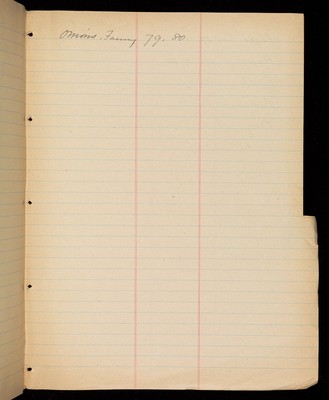 Onions, Fanny 79-80